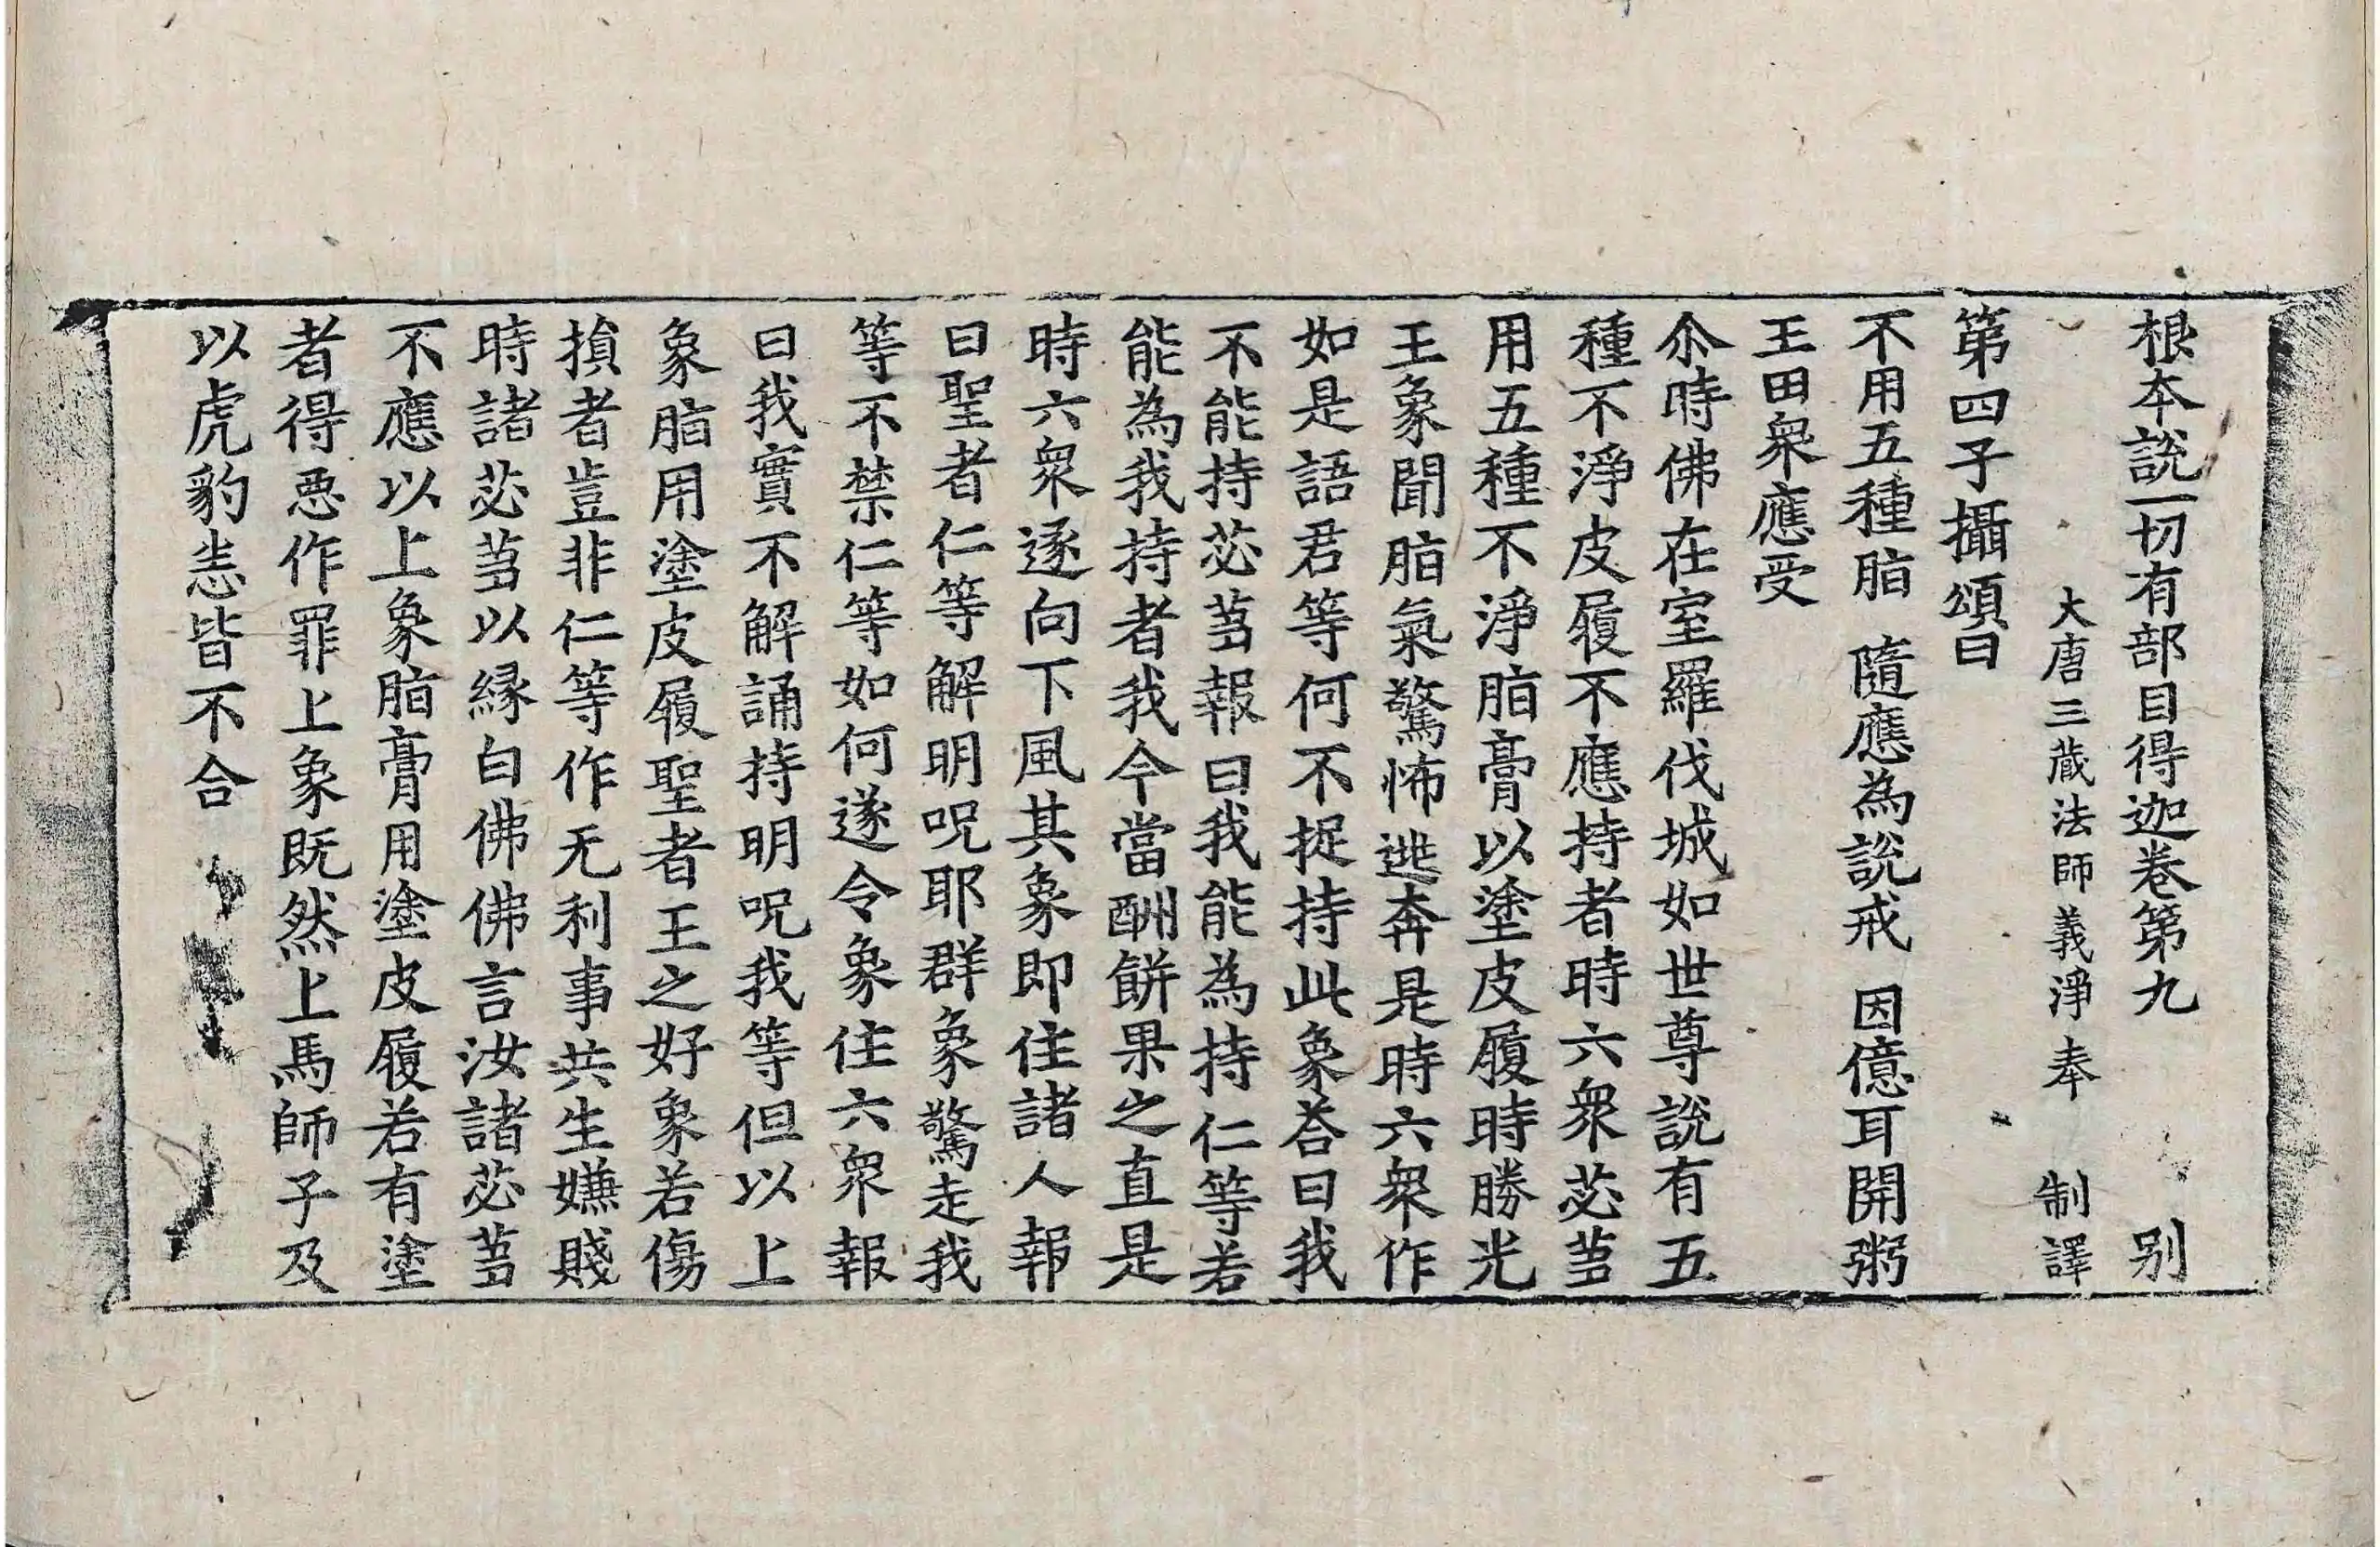 根本説一切有部目得迦卷第九　別
大唐三蔵法師義淨奉　制譯
第四子攝頌曰
不用五種脂　隨應為説戒　因億耳開粥
王田衆應受
尒時佛在室羅伐城如世尊説有五
種不淨皮履不應持者時六衆苾芻
用五種不淨脂膏以塗皮履時勝光
王象聞脂氣驚怖逃奔是時六衆作
如是語君等何不捉持此象荅曰我
不能持苾芻報曰我能為持仁等若
能為我持者我今當酬餅果之直是
時六衆逐向下風其象即住諸人報
曰聖者仁等解明呪耶群象驚走我
等不禁仁等如何遂令象住六衆報
曰我實不解誦持明呪我等但以上
象脂用塗皮履聖者王之好象若傷
損者豈非仁等作无利事共生嫌賤
時諸苾芻以縁白佛佛言汝諸苾芻
不應以上象脂膏用塗皮履若有塗
者得惡作罪上象既然上馬師子及
以虎豹恙皆不合